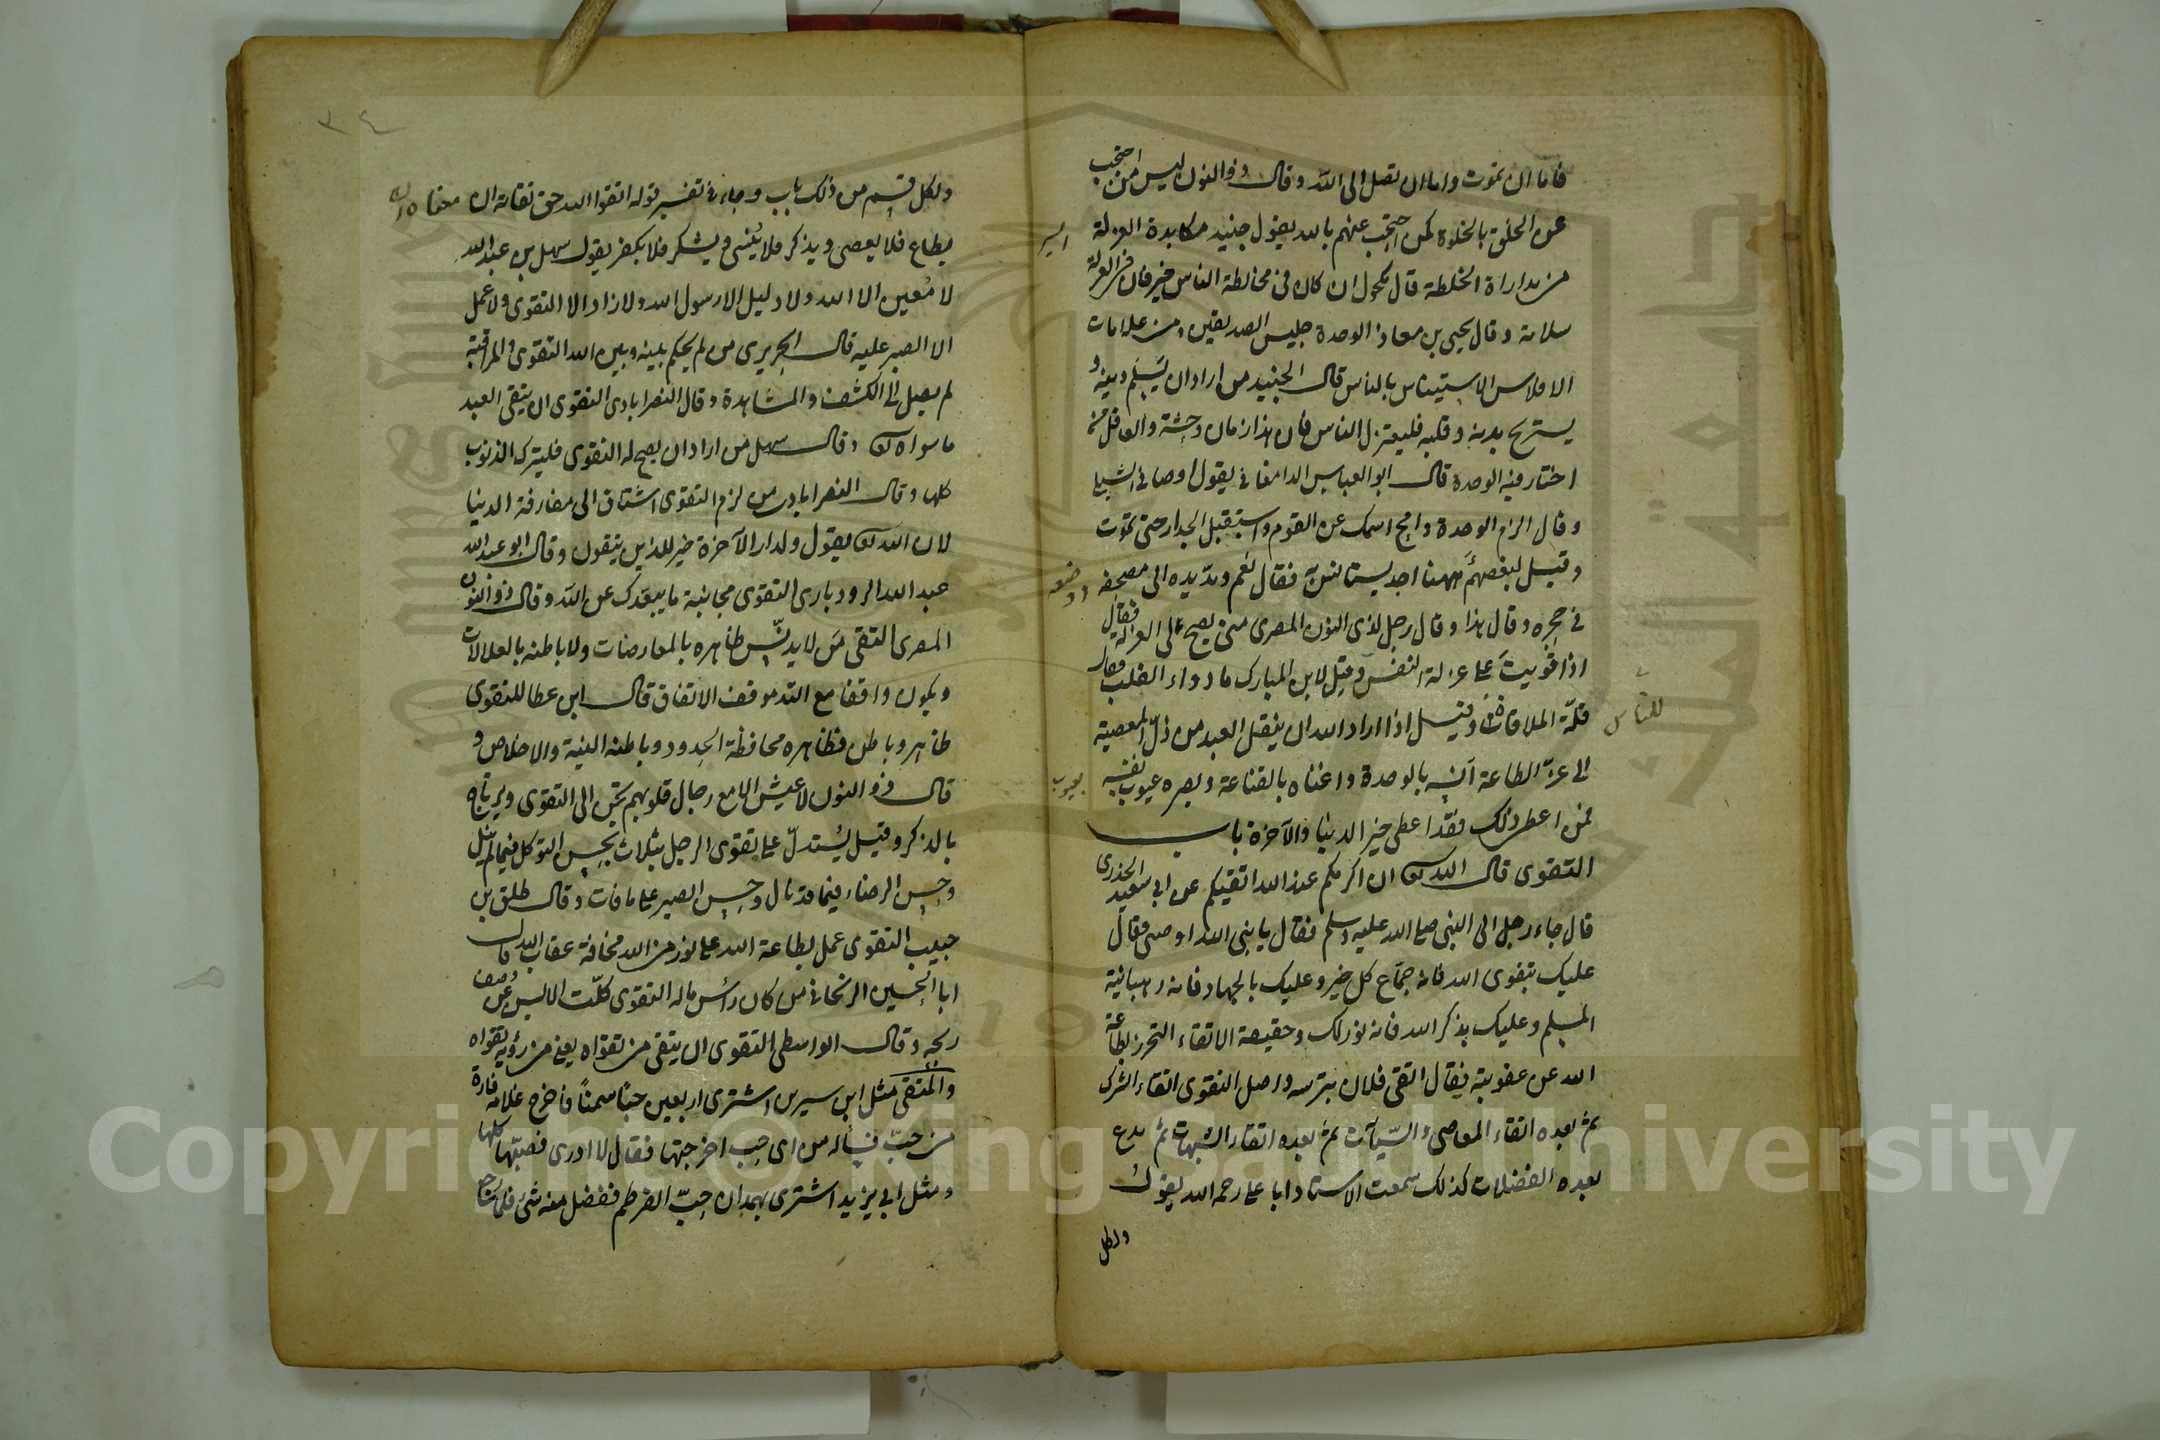 فاما ان تموت واما ان تصل الى الله وقال ذو النون ليس من احتجب
عن الخلق بالخلوة كمن احتجب عنهم بالله يقول جنيد مكابدة العزلة ايسر
من مداراة الخلطة قال مكحول ان كان فى مخالطة الناس خير فان فى العزلة
سلامة وقال يحيى بن معاذ الوحدة جليس الصديقين ومن علامات
الافلاس الاستيناس بالناس قال الجنيد من اراد ان يسلم دينه و
يستريح بدنه وقلبه فليعتزل الناس فان هذا زمان وحشة والعاقل من
اختار فيه الوحدة قال ابو العباس الدامغانى يقول اوصانى الشبلى
وقال الزم الوحدة وامح اسمك عن القوم واستقبل الجدار حتى تموت
وقيل لبعضهم ههنا احد يستانس به فقال نعم ومد يده الى مصحفه ووضعه
فى حجره وقال هذا وقال رجل لذى النون المصرى متى يصح لى العزلة فقال
اذا قويت على عزلة النفس وقيل لابن المبارك ما دواء القلب فقال
قلة الملاقات للناس وقيل اذا اراد الله ان ينقل العبد من ذل المعصية
الى عز الطاعة آنسه بالوحدة واغناه بالقناعة وبصره عيوب نفسه بعيوب
فمن اعطى ذلك فقد اعطى خير الدنيا والآخرة باب
التقوى قال الله تعالى ان اكرمكم عند الله اتقيكم عن ابى سعيد الخدرى
قال جاء رجل الى النبى صلى الله عليه وسلم فقال يا نبى الله اوصنى فقال
عليك بتقوى الله فانه جماع كل خير وعليك بالجهاد فانه رهبانية
المسلم وعليك بذكر الله فانه نور لك وحقيقة الاتقاء التحرز بطاعة
الله عن عقوبته يقال اتقى فلان بترسه واصل التقوى اتقاء الشرك
ثم بعده اتقاء المعاصى والسيآت ثم بعده اتقاء الشبهات ثم يدع
بعده الفضلات كذلك سمعت الاستاد ابا على رحمه الله يقول
ولكل
٣٤
ولكل قسم من ذلك باب وجاء فى تفسير قوله اتقوا الله حق تقاته ان معناه ان
يطاع فلا يعصى ويذكر فلا ينسى ويشكر فلا يكفر يقول سهل بن عبد الله
لا معين الا الله ولا دليل الا رسول الله ولا زاد الا التقوى ولا عمل
الا الصبر عليه قال الجريرى من لم يحكم بينه وبين الله التقوى والمراقبة
لم يصل الى الكشف والمشاهدة وقال النصرابادى التقوى ان يتقى العبد
ما سواه تعالى وقال سهل من اراد ان يصح له التقوى فليترك الذنوب
كلها وقال النصرابادى من لزم التقوى اشتاق الى مفارقة الدنيا
لان الله تعالى يقول ولدار الآخرة خير للذين يتقون وقال ابو عبد الله
عبد الله الرودبارى التقوى مجانبة ما يبعدك عن الله وقال ذو النون
المصرى التقى من لا يدنس ظاهره بالمعارضات ولا باطنه بالعلالات
ويكون واقفا مع الله موقف الاتفاق قال ابن عطا للتقوى
ظاهر وباطن فظاهره محافظة الحدود وباطنه النية والاخلاص و
قال ذو النون لا عيش الا مع رجال قلوبهم تحن الى التقوى ويرتاح
بالذكر وقيل يستدل على تقوى الرجل بثلاث بحسن التوكل فيما لم ينل
وحسن الرضاء فيما قد نال وحسن الصبر على ما فات وقال طلق بن
حبيب التقوى عمل بطاعة الله على نور من الله مخافة عقاب الله قال
ابا الحسين الزنجانى من كان رأس ماله التقوى كلت الالسن عن وصف
ربحه وقال الواسطى التقوى ان يتقى من تقواه يعنى من رؤية تقواه
والمتقى مثل ابن سيرين اشترى اربعين حبا سمنا فاخرج غلامه فارة
من حب فسأله من اى حب اخرجتها فقال لا ادرى فصبها كلها
ومثل ابى يزيد اشترى بهمدان حب القرطم ففضل منه شئ فلما رجع
Copyright © King Saud University
جامعة الملك سعود
King Saud University
1957